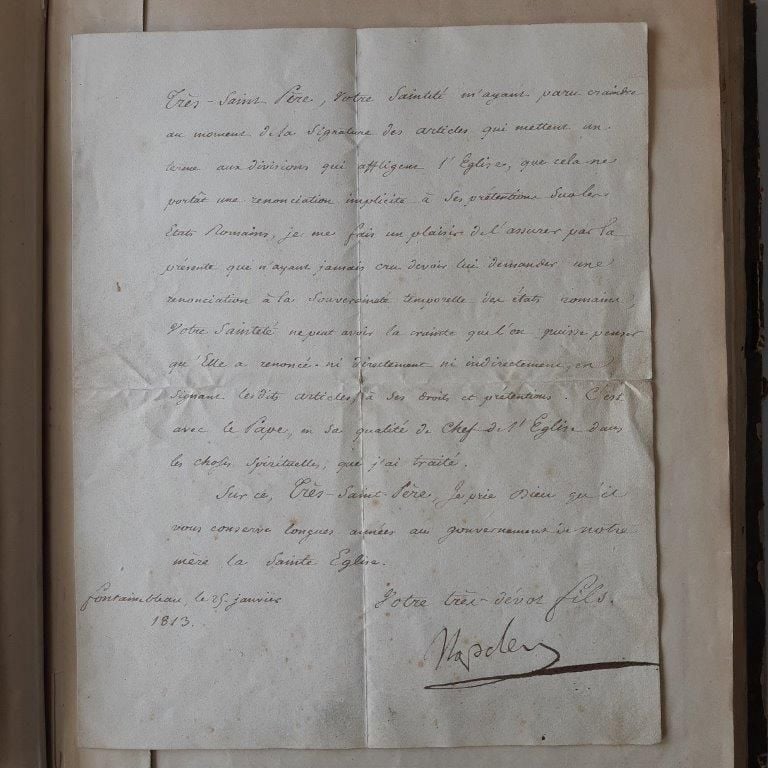 Très-Saint Père, Votre Sainteté m'ayant paru craindre
au moment de la Signature des articles qui mettent un
terme aux divisions qui affligent l'Eglise, que cela ne
portât une renonciation implicite à Ses prétentions Sur les
Etats Romains, je me fais un plaisir de l'assurer par la
présente que n'ayant jamais cru devoir lui demander une
renonciation à la Souveraineté temporelle des états romains,
Votre Sainteté ne peut avoir la crainte que l'on puisse penser
qu'Elle a renoncé ni directement ni indirectement, en
Signant lesdits articles, à ses droits et prétentions. C'est
avec le Pape, en sa qualité de Chef de l'Eglise dans
les choses Spirituelles, que j'ai traité.
Sur ce, Très-Saint-Père, Je prie Dieu qu'il
vous conserve longues années au gouvernement de notre
mère la Sainte Eglise.
fontainebleau, le 25 janvier
1813.
Votre très-dévot fils.
Napoleon